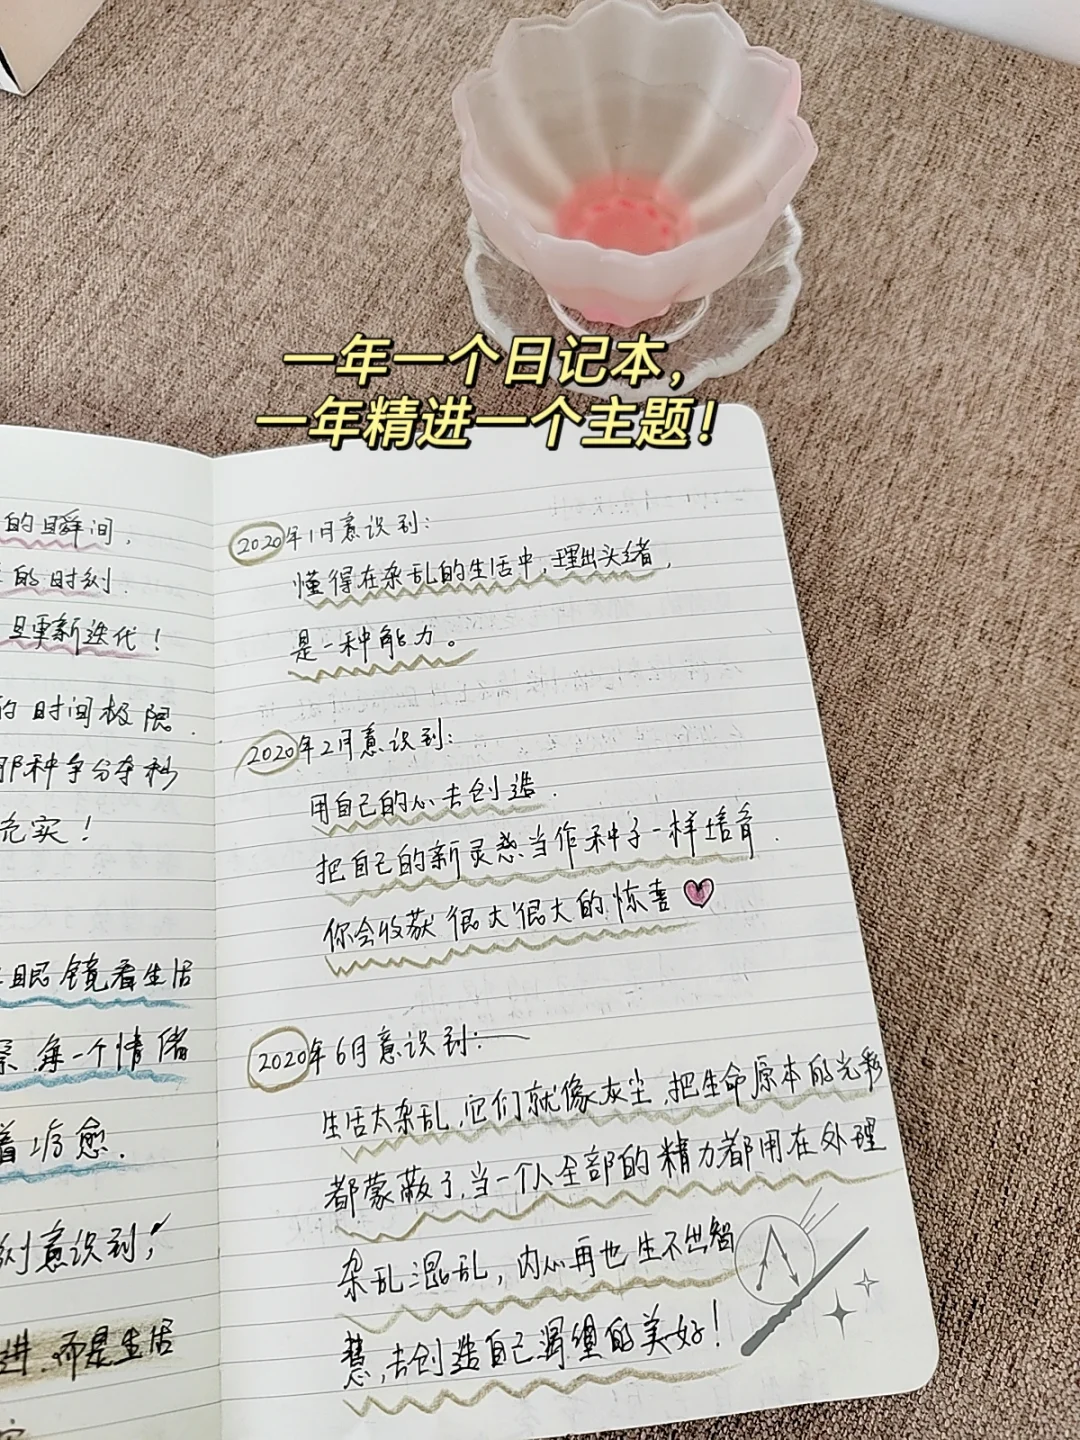 一年一个日记本，
一年精进一个主题！
的瞬间，
的时刻.
且重新迭代！
的时间极限.
那种争分夺秒
充实！
眼镜看生活
每一个情绪
着治愈.
刻意识到；
进，而是生活
2020年1月意识到：
懂得在杂乱的生活中，理出头绪，
是一种能力。
2020年2月意识到：
用自己的心去创造.
把自己的新灵感当作种子一样培育.
你会收获很大很大的惊喜
2020年6月意识到：
生活太杂乱，它们就像灰尘，把生命原本的光彩
都蒙蔽了，当一个人全部的精力都用在处理
杂乱混乱，内心再也生不出智
慧，去创造自己渴望的美好！